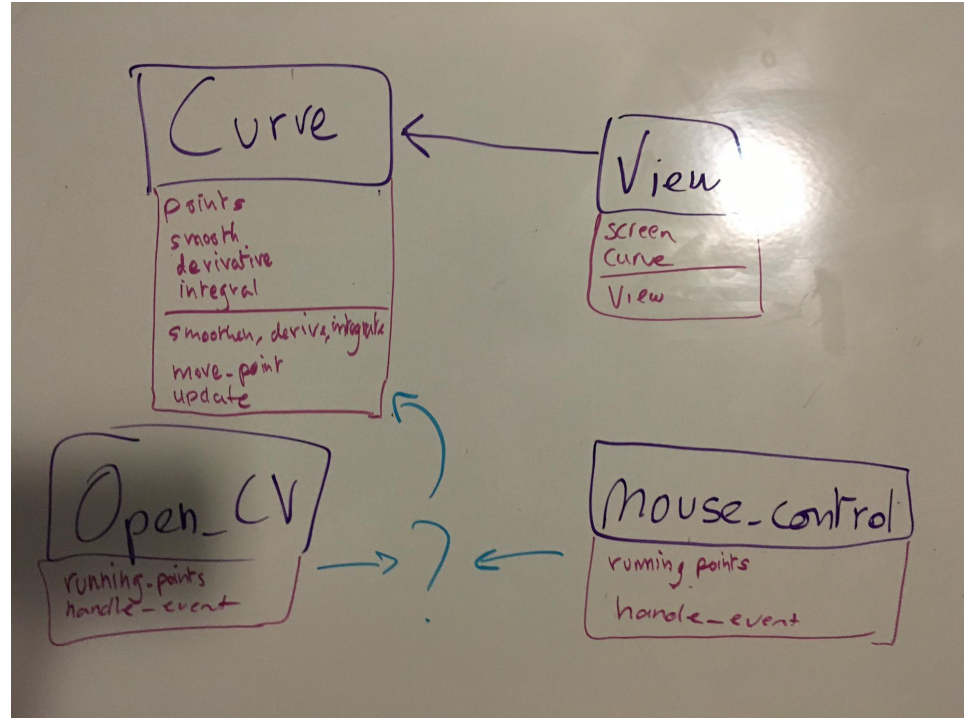 Curve
points
smooth
derivative
integral
smoothen, derive, integrate
move_point
update
View
screen
curve
View
Open_CV
running_points
handle_event
?
mouse_control
running points
handle_event